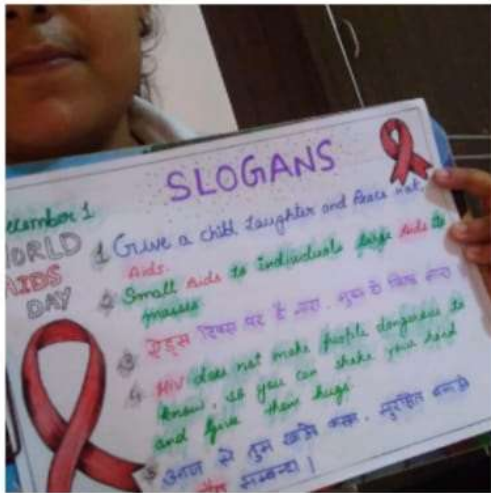 SLOGANS
ecember 1
WORLD
AIDS
DAY
1 Give a child Laughter and Peace not
Aids.
2 Small Aids to Individuals large Aids to
masses
3 एड्स दिवस पर है नारा
4 HIV does not make people dangerous to
know, so you can shake your hand
and give them hugs.
5 आज से तुम खाओ कसम, सुरक्षित बनाओ
यौन सम्बन्ध।